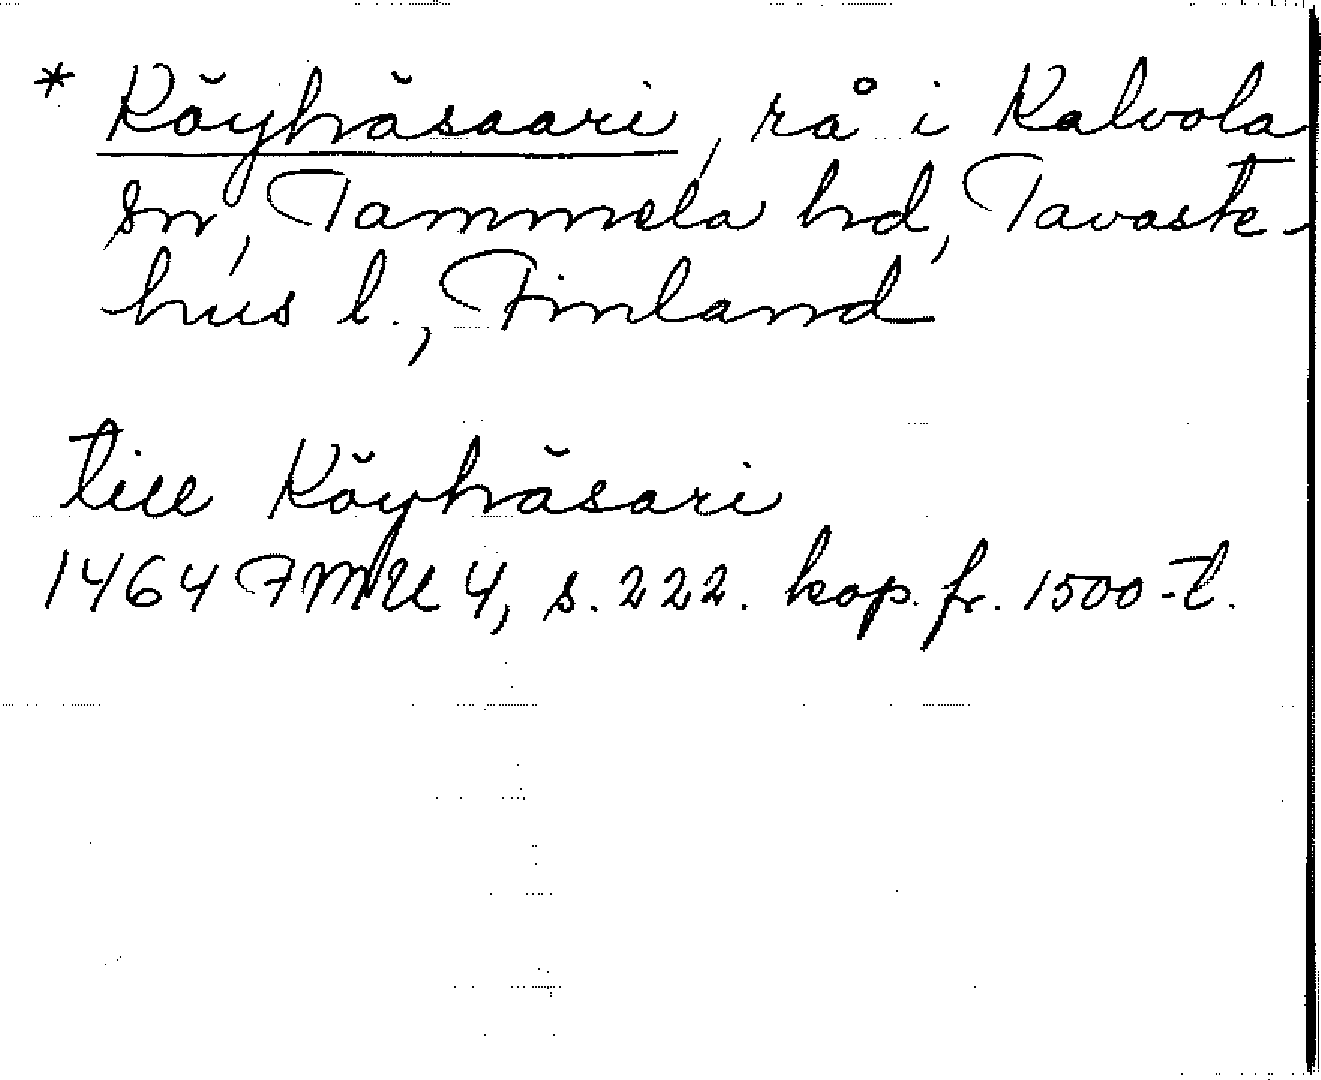 * Köyhäsaari, rå i Kalvola
sn, Tammela hd, Tavaste-
hus l., Finland
till Köyhäsari
1464 FMU 4, s. 222. kop. fr. 1500-t.